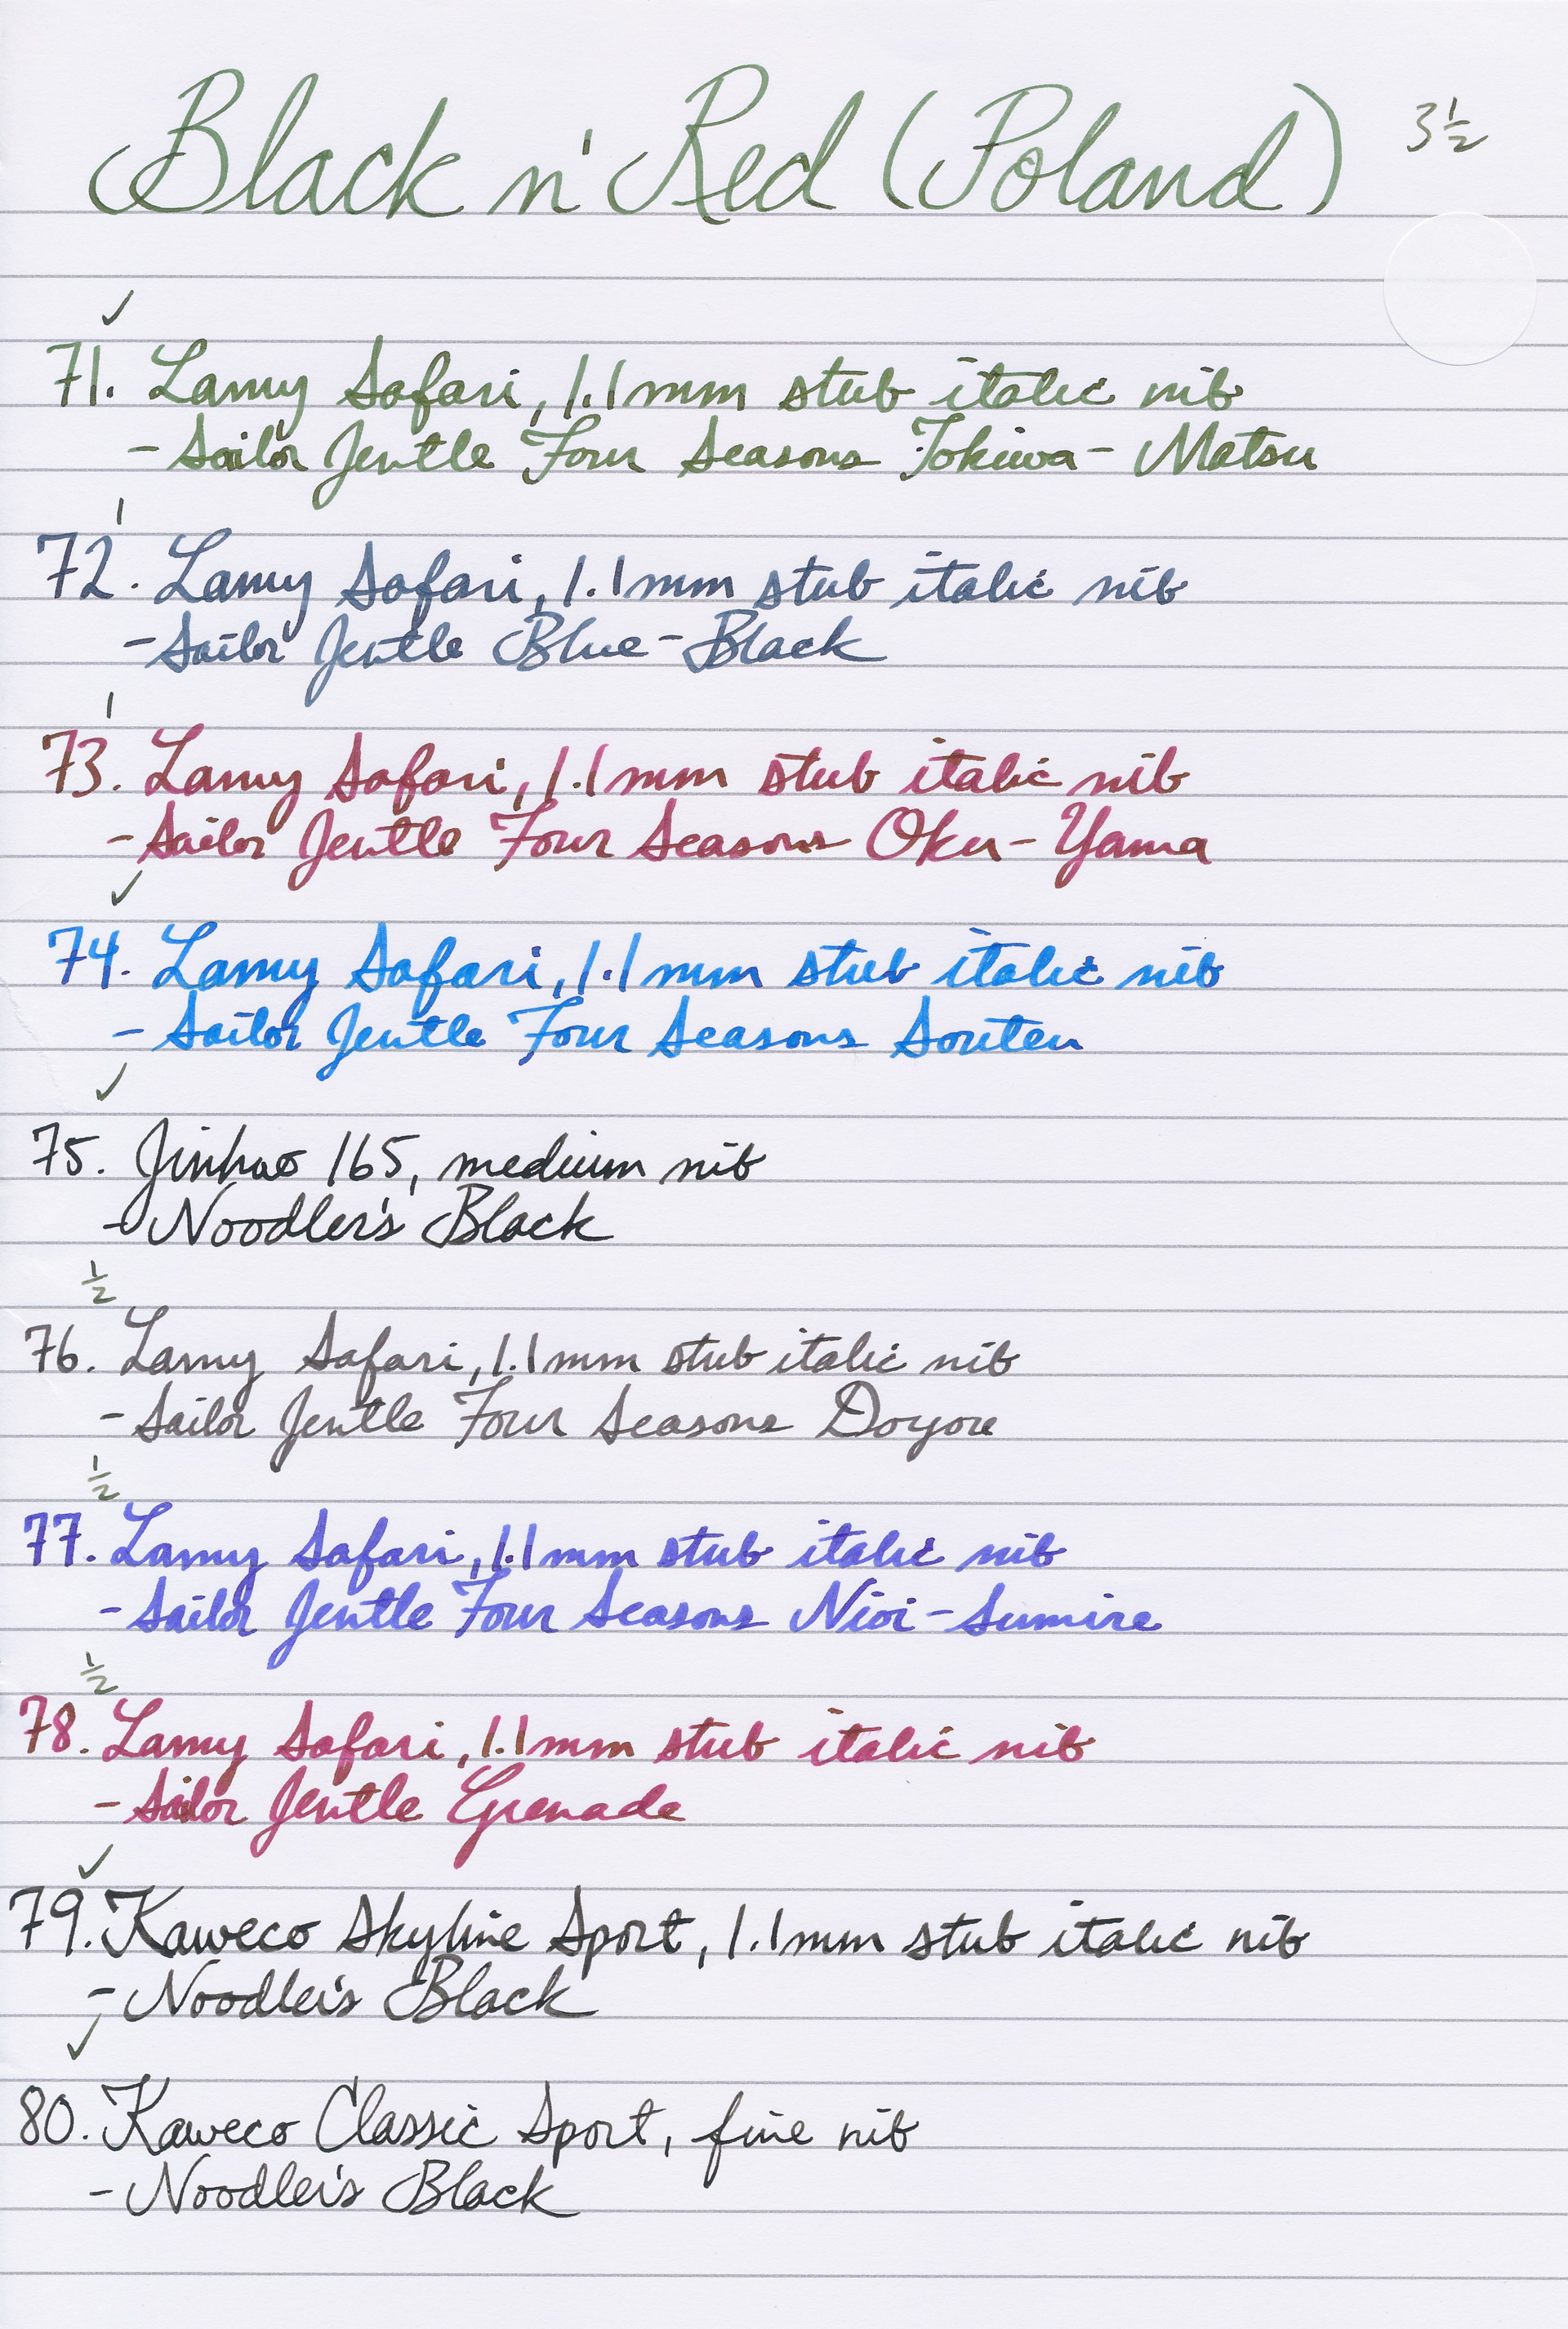 Black n' Red (Poland) 3½
✓
71. Lamy Safari, 1.1mm stub italic nib
- Sailor Jentle Four Seasons Tokiwa-Matsu
1
72. Lamy Safari, 1.1mm stub italic nib
- Sailor Jentle Blue-Black
1
73. Lamy Safari, 1.1mm stub italic nib
- Sailor Jentle Four Seasons Oku-Yama
✓
74. Lamy Safari, 1.1mm stub italic nib
- Sailor Jentle Four Seasons Souten
✓
75. Jinhao 165, medium nib
- Noodler's Black
½
76. Lamy Safari, 1.1mm stub italic nib
- Sailor Jentle Four Seasons Doyou
½
77. Lamy Safari, 1.1mm stub italic nib
- Sailor Jentle Four Seasons Nioi-Sumire
½
78. Lamy Safari, 1.1mm stub italic nib
- Sailor Jentle Grenade
✓
79. Kaweco Skyline Sport, 1.1mm stub italic nib
- Noodler's Black
✓
80. Kaweco Classic Sport, fine nib
- Noodler's Black